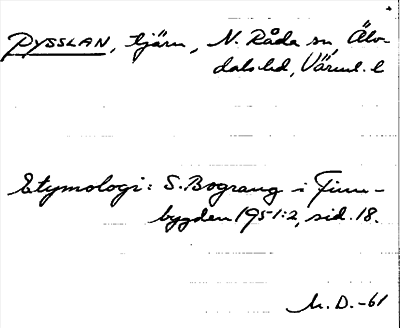 PYSSLAN, tjärn, N. Råda sn, Älv-
dals hd, Värml. l
Etymologi: S. Bograng i Finn-
bygden 1951:2, sid. 18.
M. D. -61